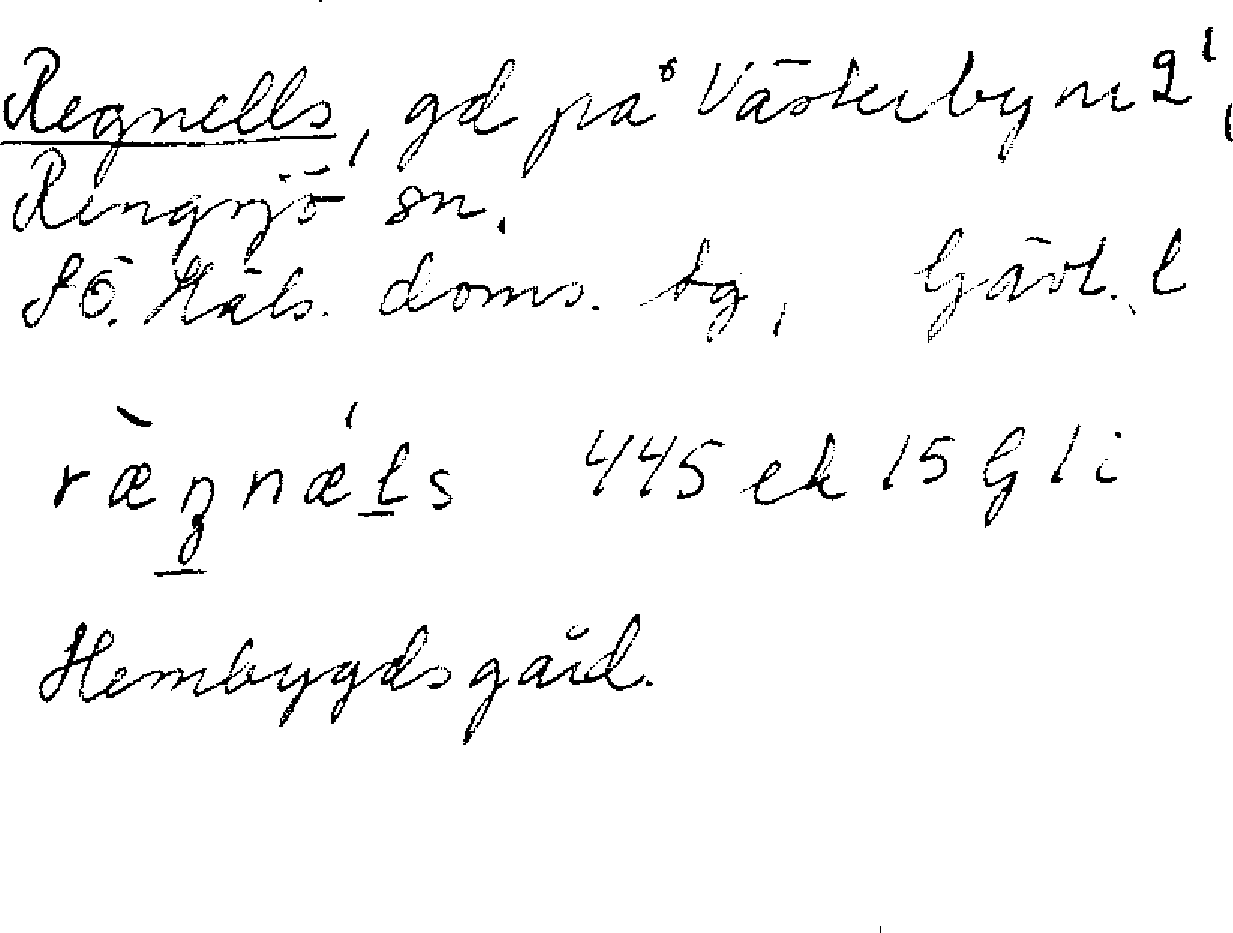 Regnells, gd på Västerby nr 2¹,
Rengsjö sn.
SÖ. Häls. doms. tg, Gävl. l
ræ̀ŋnæ´ls 445 ek 15 G 1 i
Hembygdsgård.